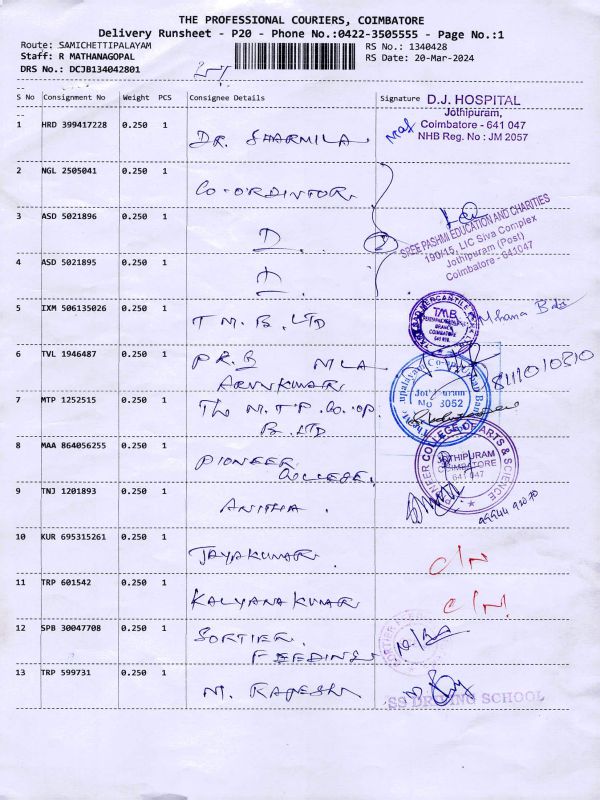 THE PROFESSIONAL COURIERS, COIMBATORE
Delivery Runsheet - P20 - Phone No.:0422-3505555 - Page No.:1
Route: SAMICHETTIPALAYAM
Staff: R MATHANAGOPAL
DRS No.: DCJB134042801
RS No.: 1340428
RS Date: 20-Mar-2024
S No Consignment No Weight PCS Consignee Details Signature
D.J. HOSPITAL
Jothipuram,
Coimbatore - 641 047
NHB Reg. No : JM 2057
1 HRD 399417228 0.250 1 DR. SHARMILA
2 NGL 2505041 0.250 1 CO-ORDINTOR
3 ASD 5021896 0.250 1
SREE PASHMI EDUCATION AND CHARITIES
190/15, LIC Siva Complex
Jothipuram (Post)
Coimbatore - 641047
4 ASD 5021895 0.250 1
5 IXM 506135026 0.250 1 T M. B. LTD
TMB
COIMBATORE
6 TVL 1946487 0.250 1 P R. B
ARUNKUMAR
7 MTP 1252515 0.250 1 The M. T. P. CO. OP
B. LTD
Jothipuram
No 3052
8 MAA 864056255 0.250 1 PIONEER
COLLEGE
PIONEER COLLEGE OF ARTS & SCIENCE
JOTHIPURAM
COIMBATORE
641 047
9 TNJ 1201893 0.250 1 ANITHA.
10 KUR 695315261 0.250 1 JAYAKUMAR C/N
11 TRP 601542 0.250 1 KALYANA KUMAR C/N
12 SPB 30047708 0.250 1 SORTIER
FEEDINGS
13 TRP 599731 0.250 1 M. RAJESH
SS DRIVING SCHOOL